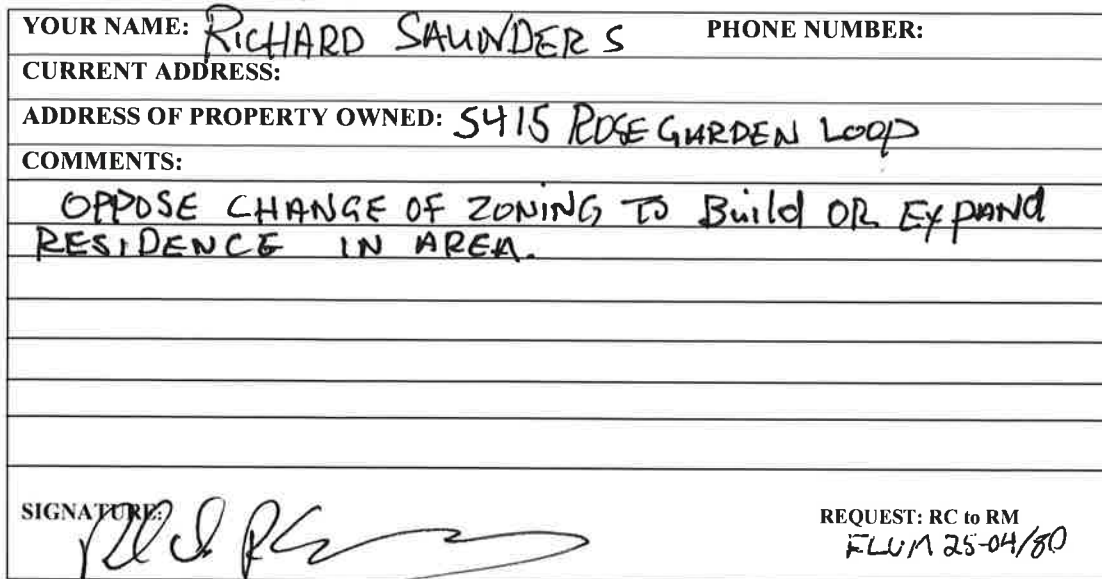 YOUR NAME: RICHARD SAUNDERS PHONE NUMBER:
CURRENT ADDRESS:
ADDRESS OF PROPERTY OWNED: 5415 ROSE GARDEN LOOP
COMMENTS:
OPPOSE CHANGE OF ZONING TO Build OR EXPAND
RESIDENCE IN AREA.
SIGNATURE:
REQUEST: RC to RM
FLUM 25-04/80